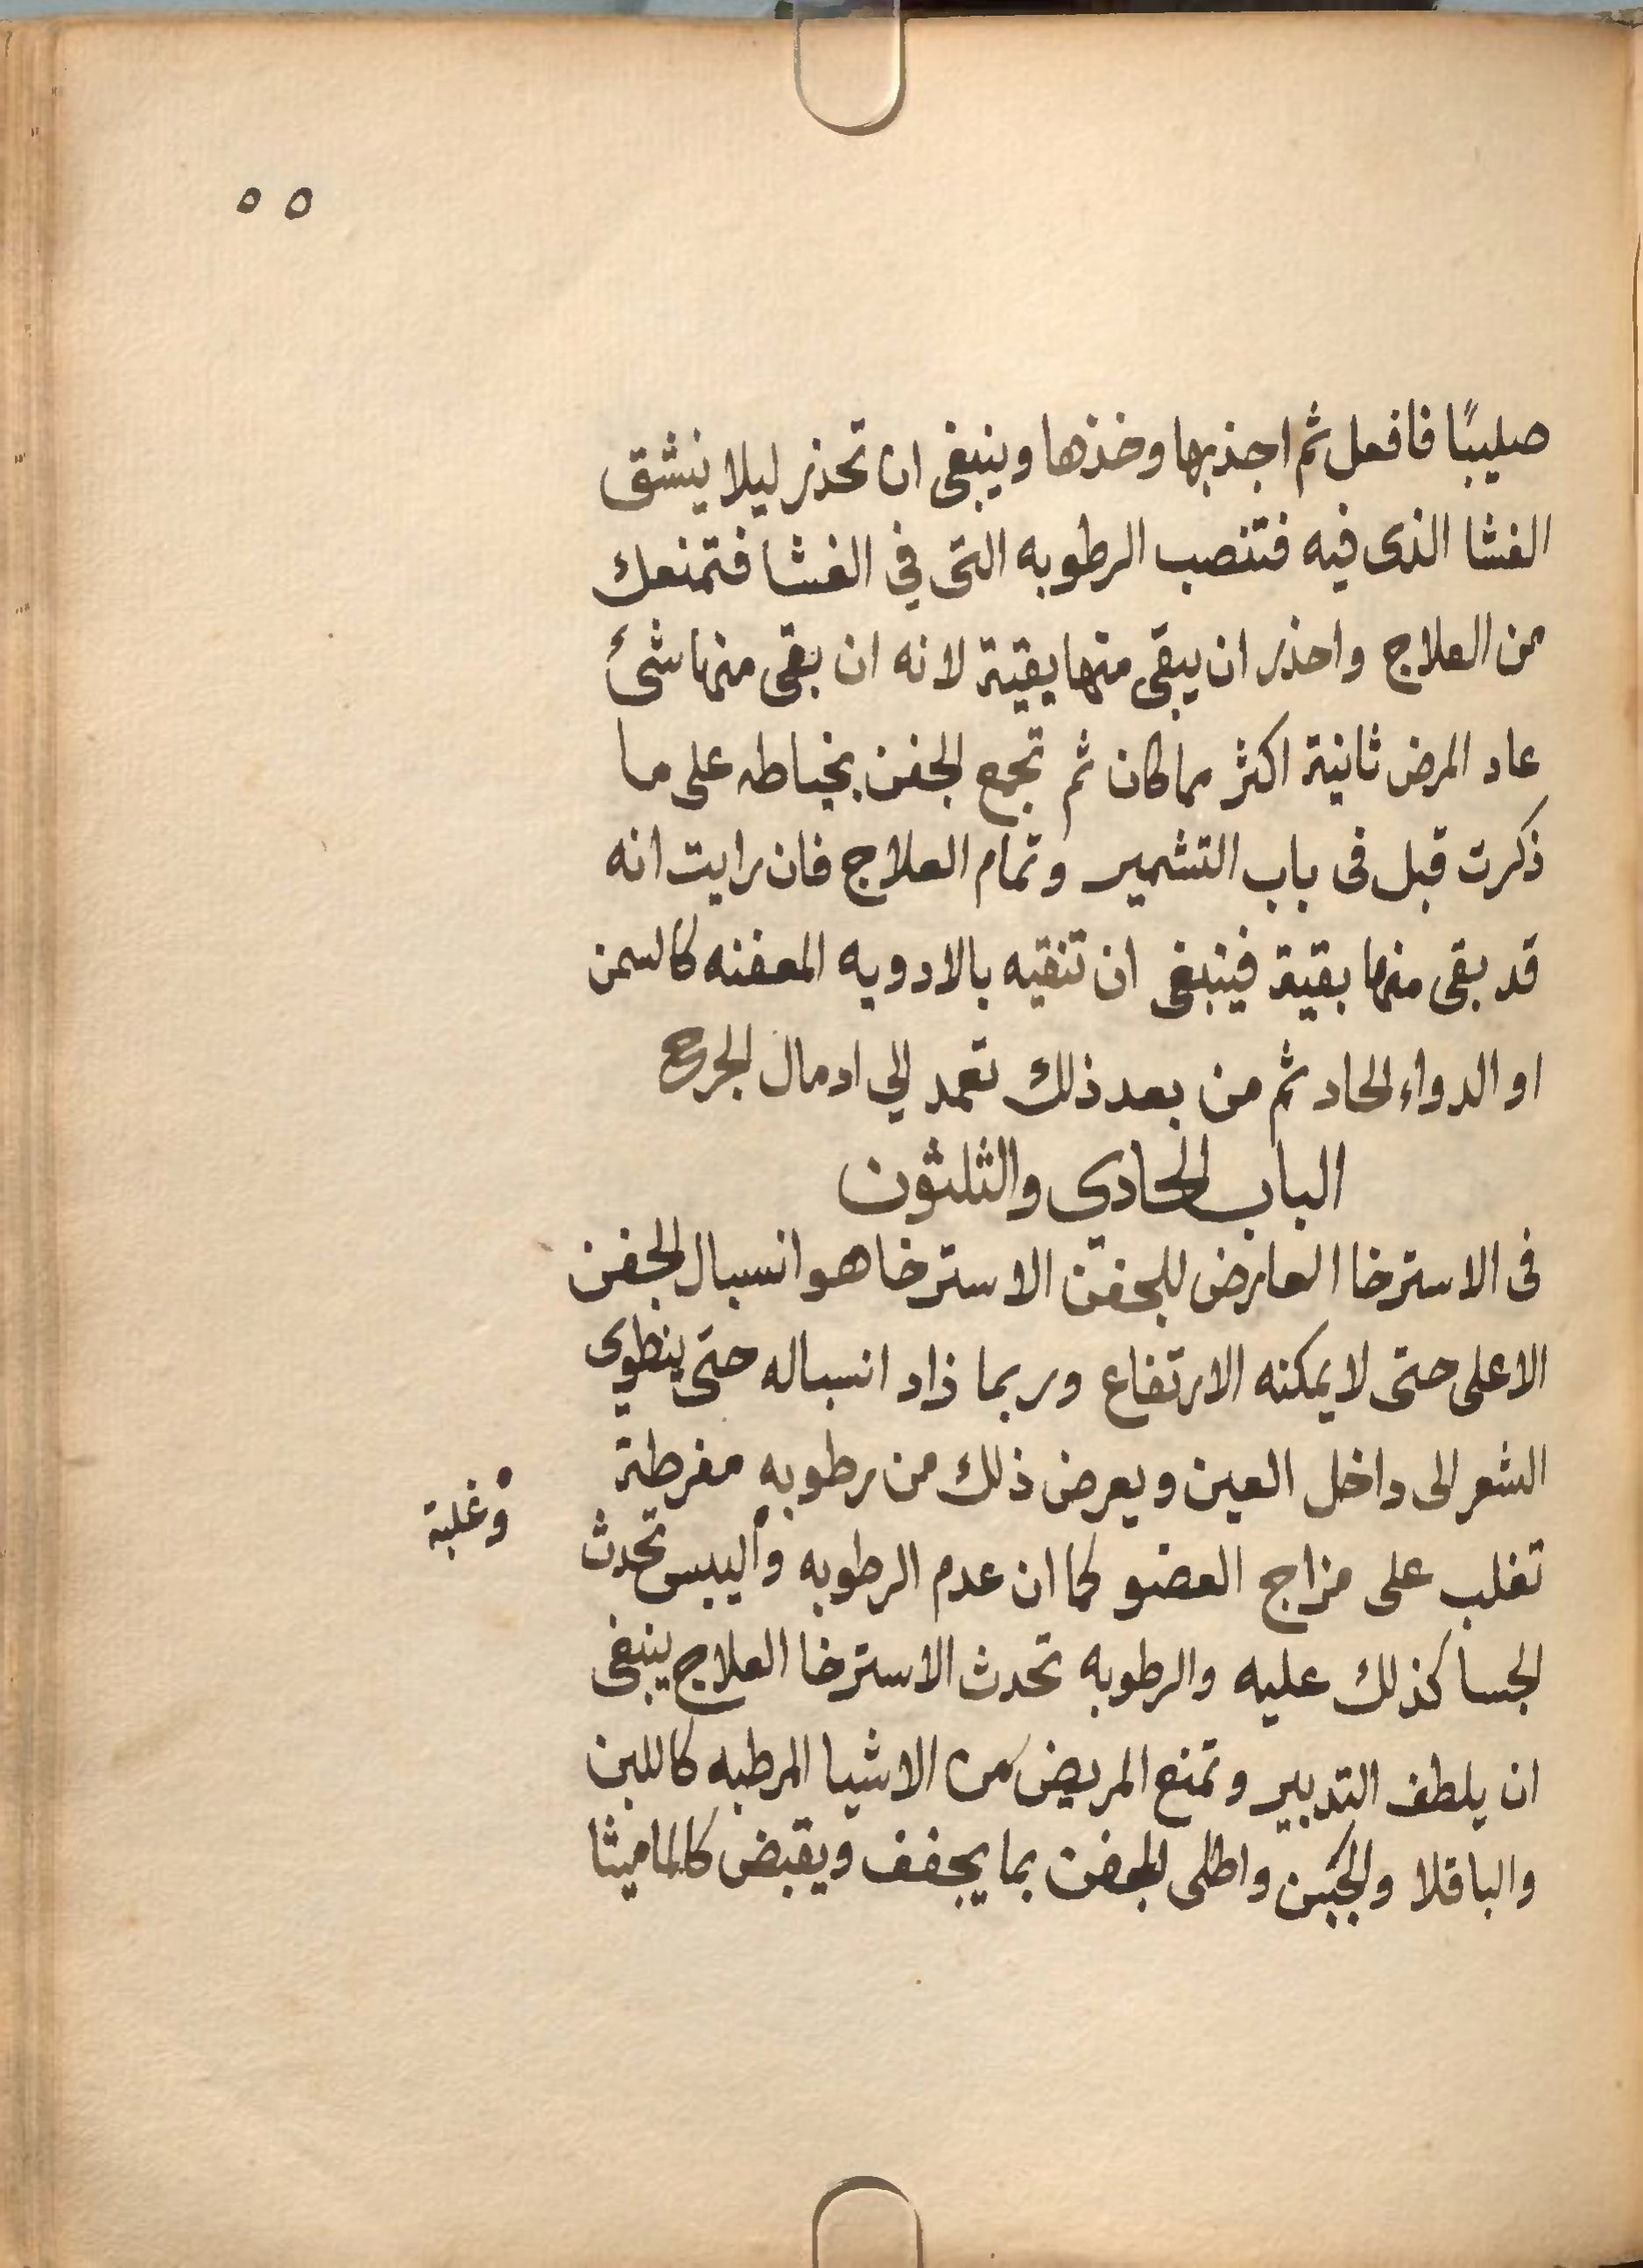 ٥٥
صليبًا فافعل ثم اجذبها وخذها وينبغى ان تحذر ليلا ينشق
الغشا الذى فيه فتنصب الرطوبه التى في الغشا فتمنعك
من العلاج واحذر ان يبقى منها بقية لانه ان بقى منها شئ
عاد المرض ثانية اكثر مما كان ثم تجمع الجفن بخياطه على ما
ذكرت قبل فى باب التشمير وتمام العلاج فان رايت انه
قد بقى منها بقية فينبغى ان تنقيه بالادويه المعفنه كالسمن
او الدواء الحاد ثم من بعد ذلك تعمد الي ادمال الجرح
الباب الحادي والثلثون
فى الاسترخا العارض للجفن الاسترخا هو انسبال الجفن
الاعلى حتى لا يمكنه الارتفاع وربما زاد انسباله حتى ينطوى
الشعر الى داخل العين ويعرض ذلك من رطوبه مفرطة
تغلب على مزاج العضو كما ان عدم الرطوبه واليبس تحدث
وغلبة
الجسا كذلك عليه والرطوبه تحدث الاسترخا العلاج ينبغى
ان يلطف التدبير وتمنع المريض من الاشيا المرطبه كاللبن
والباقلا والجبن واطلى الجفن بما يجفف ويقبض كالماميثا